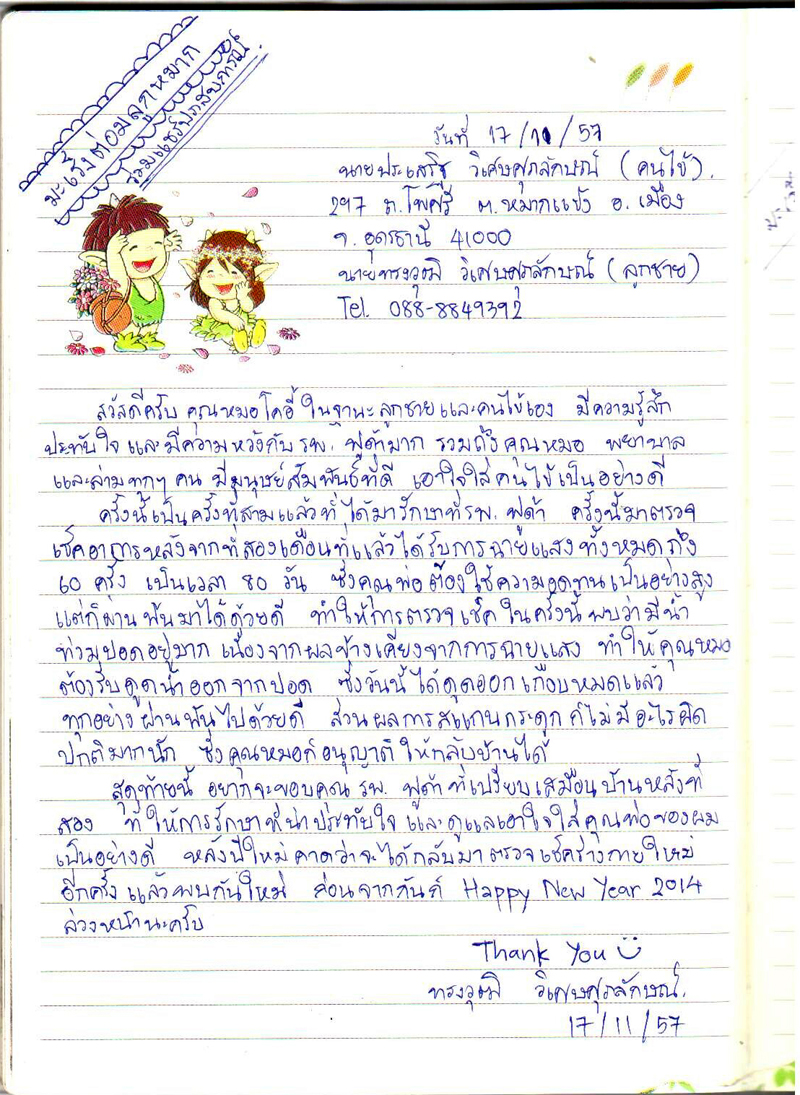 มะเร็งต่อมลูกหมาก
ร่วมแชร์ประสบการณ์
วันที่ 17/11/57
นายประเสริฐ วิเศษศุภลักษณ์ (คนไข้).
297 ถ.โพศรี ต.หมากแข้ง อ.เมือง
จ.อุดรธานี 41000
นายทรงวุฒิ วิเศษศุภลักษณ์ (ลูกชาย)
Tel. 088-8849392
สวัสดีครับ คุณหมอโคอี้ ในฐานะลูกชายและคนไข้เอง มีความรู้สึก
ประทับใจ และมีความหวังกับ รพ. ฟูด้ามาก รวมถึงคุณหมอ พยาบาล
และล่ามทุกๆ คน มีมนุษย์สัมพันธ์ที่ดี เอาใจใส่คนไข้เป็นอย่างดี
ครั้งนี้เป็นครั้งที่สามแล้วที่ได้มารักษาที่ รพ. ฟูด้า ครั้งนี้มาตรวจ
เช็คอาการหลังจากที่สองเดือนที่แล้วได้รับการฉายแสงทั้งหมดถึง
60 ครั้ง เป็นเวลา 80 วัน ซึ่งคุณพ่อต้องใช้ความอดทนเป็นอย่างสูง
แต่ก็ผ่านพ้นมาได้ด้วยดี ทำให้การตรวจเช็คในครั้งนี้พบว่ามีน้ำ
ท่วมปอดอยู่มาก เนื่องจากผลข้างเคียงจากการฉายแสง ทำให้คุณหมอ
ต้องรีบดูดน้ำออกจากปอด ซึ่งวันนี้ได้ดูดออกเกือบหมดแล้ว
ทุกอย่างผ่านพ้นไปด้วยดี ส่วนผลการสแกนกระดูกก็ไม่มีอะไรผิด
ปกติมากนัก ซึ่งคุณหมอก็อนุญาติให้กลับบ้านได้
สุดท้ายนี้ อยากจะขอบคุณ รพ. ฟูด้า ที่เปรียบเสมือนบ้านหลังที่
สอง ที่ให้การรักษาที่น่าประทับใจ และดูแลเอาใจใส่คุณพ่อของผม
เป็นอย่างดี หลังปีใหม่คาดว่าจะได้กลับมาตรวจเช็คร่างกายใหม่
อีกครั้ง แล้วพบกันใหม่ ก่อนจากกันก็ Happy New Year 2014
ล่วงหน้านะครับ
Thank You
ทรงวุฒิ วิเศษศุภลักษณ์.
17/11/57